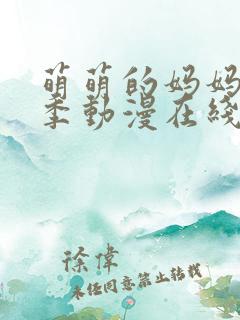 萌萌的妈妈
季動漫在綫
徐偉
未经同意禁止转载